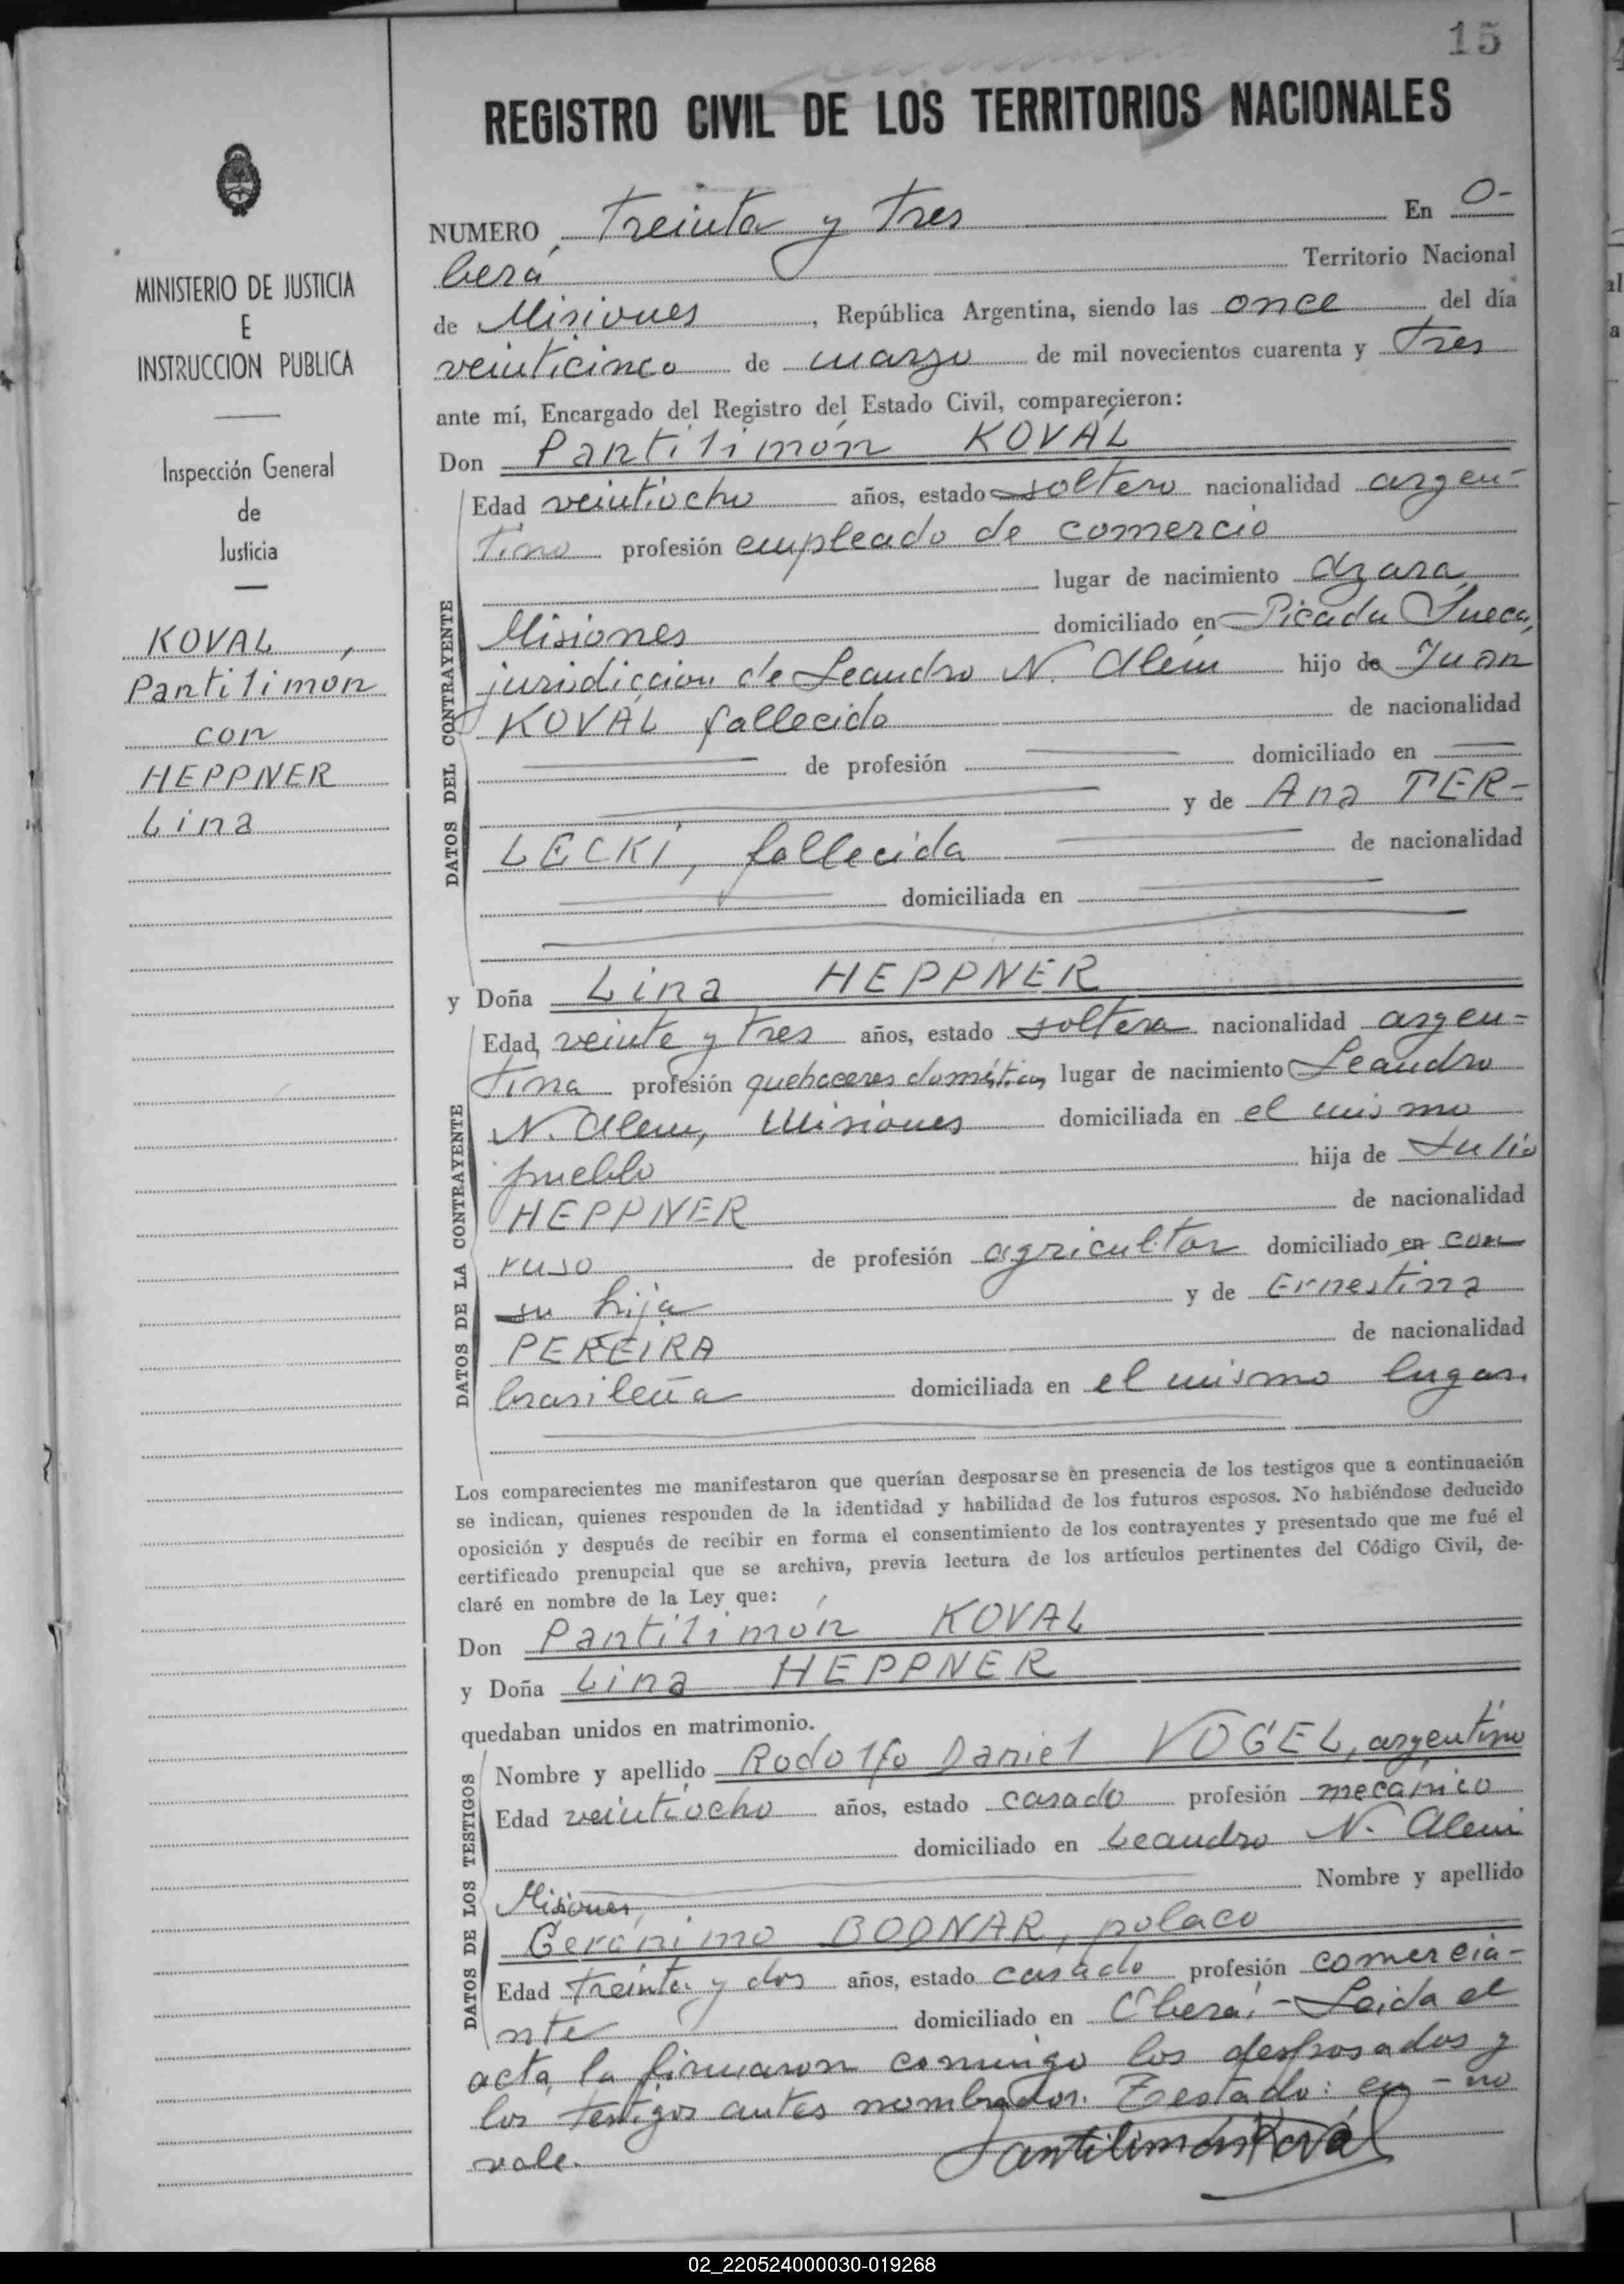 15
REGISTRO CIVIL DE LOS TERRITORIOS NACIONALES
MINISTERIO DE JUSTICIA
E
INSTRUCCION PUBLICA
Inspección General
de
Justicia
KOVAL,
Pantilimon
con
HEPPNER
Lina
NUMERO treinta y tres En O-
berá Territorio Nacional
de Misiones, República Argentina, siendo las once del día
veinticinco de marzo de mil novecientos cuarenta y tres
ante mí, Encargado del Registro del Estado Civil, comparecieron:
Don Pantilimón KOVAL
DATOS DEL CONTRAYENTE
Edad veintiocho años, estado soltero nacionalidad argen-
tino profesión empleado de comercio
lugar de nacimiento Azara,
Misiones domiciliado en Picada Sueca,
jurisdiccion de Leandro N. Alem hijo de Juan
KOVAL fallecido de nacionalidad
de profesión domiciliado en
y de Ana TER-
LECKI, fallecida de nacionalidad
domiciliada en
y Doña Lina HEPPNER
DATOS DE LA CONTRAYENTE
Edad veinte y tres años, estado soltera nacionalidad argen-
tina profesión quehaceres domésticos lugar de nacimiento Leandro
N. Alem, Misiones domiciliada en el mismo
pueblo hija de Julio
HEPPNER de nacionalidad
ruso de profesión agricultor domiciliado en con
su hija y de Ernestina
PEREIRA de nacionalidad
brasileña domiciliada en el mismo lugar.
Los comparecientes me manifestaron que querían desposarse en presencia de los testigos que a continuación
se indican, quienes responden de la identidad y habilidad de los futuros esposos. No habiéndose deducido
oposición y después de recibir en forma el consentimiento de los contrayentes y presentado que me fué el
certificado prenupcial que se archiva, previa lectura de los artículos pertinentes del Código Civil, de-
claré en nombre de la Ley que:
Don Pantilimón KOVAL
y Doña Lina HEPPNER
quedaban unidos en matrimonio.
DATOS DE LOS TESTIGOS
Nombre y apellido Rodolfo Daniel VOGEL, argentino
Edad veintiocho años, estado casado profesión mecánico
domiciliado en Leandro N. Alem
Misiones, Nombre y apellido
Gerónimo BODNAR, polaco
Edad treinta y dos años, estado casado profesión comercia-
nte domiciliado en Oberá.- Leida el
acta, la firmaron conmigo los desposados y
los testigos antes nombrados. Testado: en - no
vale.
Pantilimón Koval
02_220524000030-019268